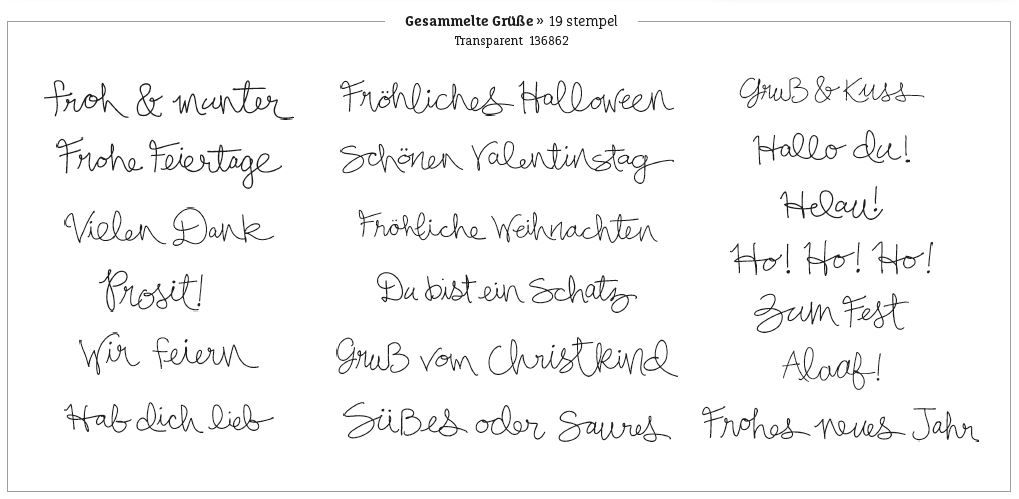 Gesammelte Grüße » 19 stempel
Transparent 136862
froh & munter
Frohe Feiertage
Vielen Dank
Prosit!
Wir feiern
Hab dich lieb
Fröhliches Halloween
Schönen Valentinstag
Fröhliche Weihnachten
Du bist ein Schatz
Gruß vom Christkind
Süßes oder Saures
Gruß & Kuss
Hallo du!
Helau!
Ho! Ho! Ho!
Zum Fest
Alaaf!
Frohes neues Jahr